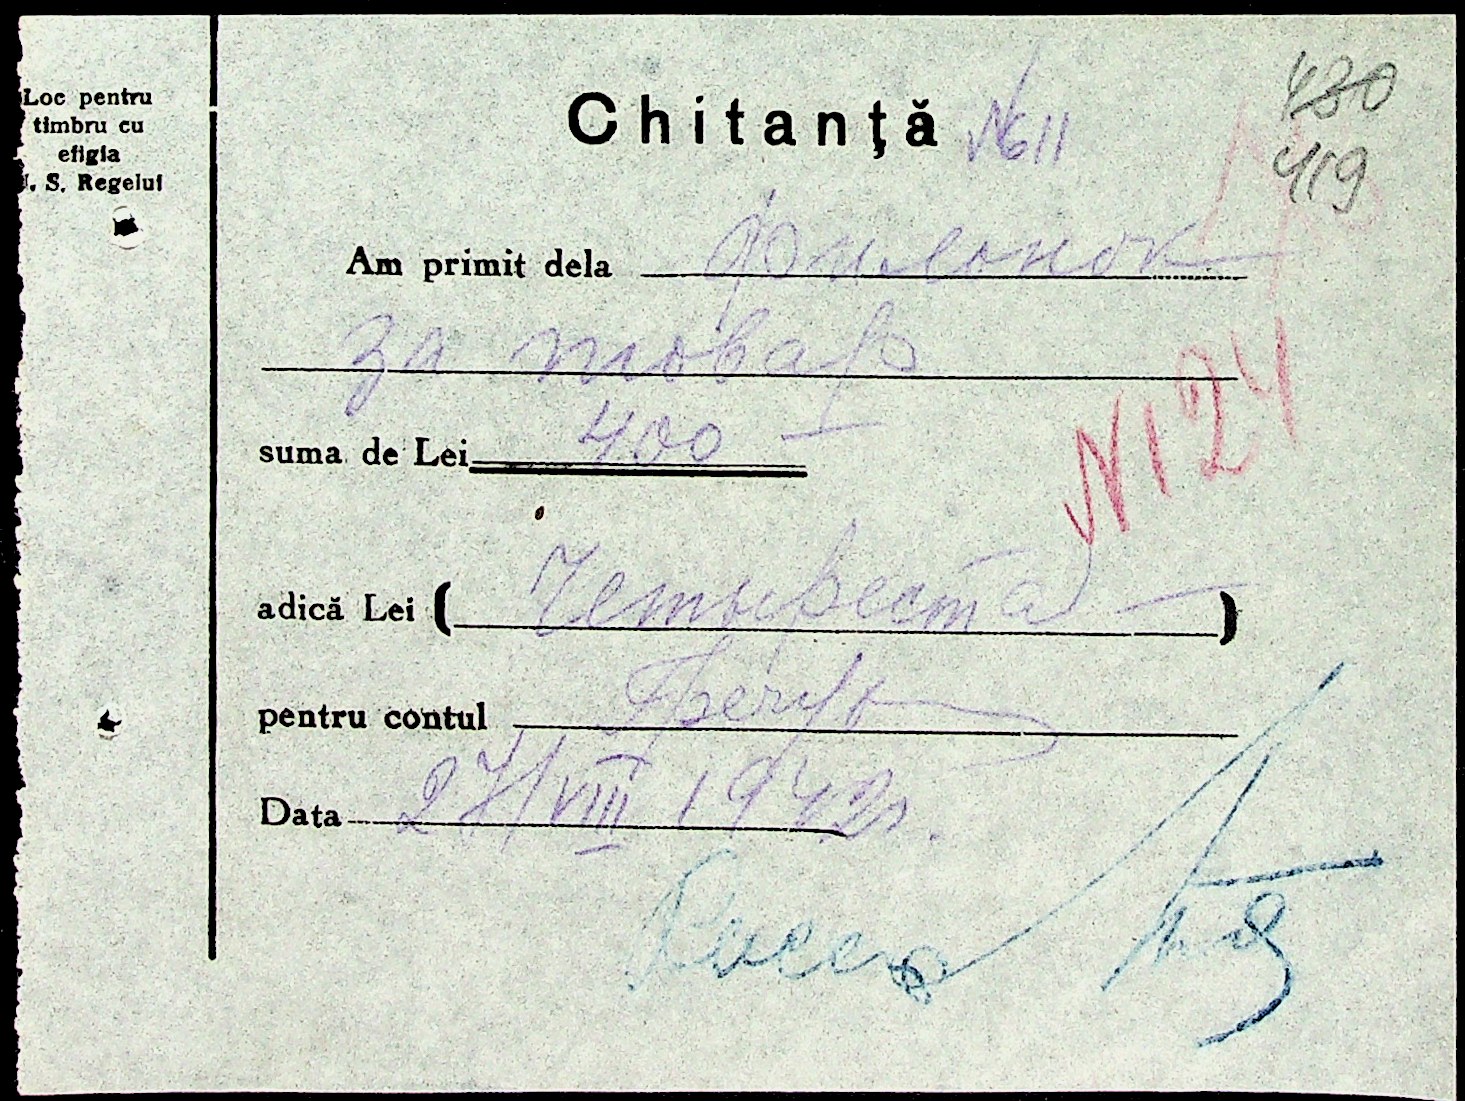 Loc pentru
timbru cu
efigia
. S. Regelui
Chitanţă № 11
480
419
Am primit dela Филонок
за товар
suma de Lei 400 —
N 124
adică Lei ( Четыреста — )
pentru contul
Data 27/VIII 1942г.
Касса